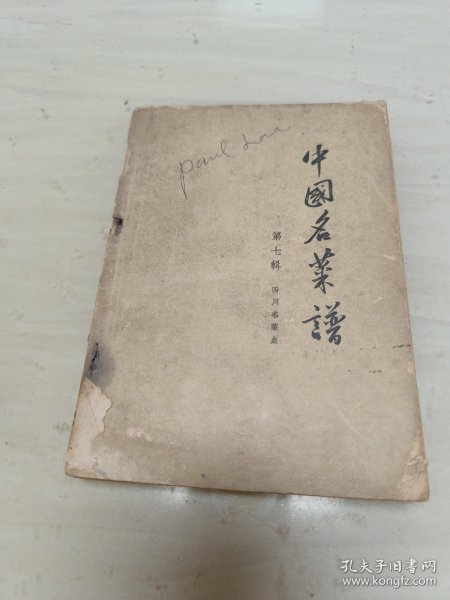 paul
中國名菜譜
第七輯
四川名菜点
孔夫子旧书网
www.kongfz.com